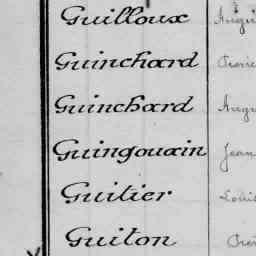 Guilloux Augu
Guinchard Pierre
Guinchard Augu
Guingouain Jean
Guitier Louis
Guiton Pier